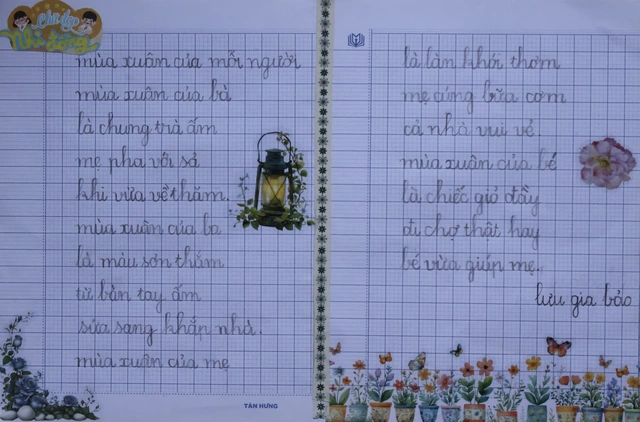 Chữ đẹp
Nhi đồng
mùa xuân của mỗi người
mùa xuân của bà
là chung trà ấm
mẹ pha với sả
khi vừa về thăm.
mùa xuân của ba
là màu sơn thắm
từ bàn tay ấm
sửa sang khắp nhà.
mùa xuân của mẹ
TÂN HƯNG
là làn khói thơm
mẹ cúng bữa cơm
cả nhà vui vẻ.
mùa xuân của bé
là chiếc giỏ đầy
đi chợ thật hay
bé vừa giúp mẹ.
lưu gia bảo